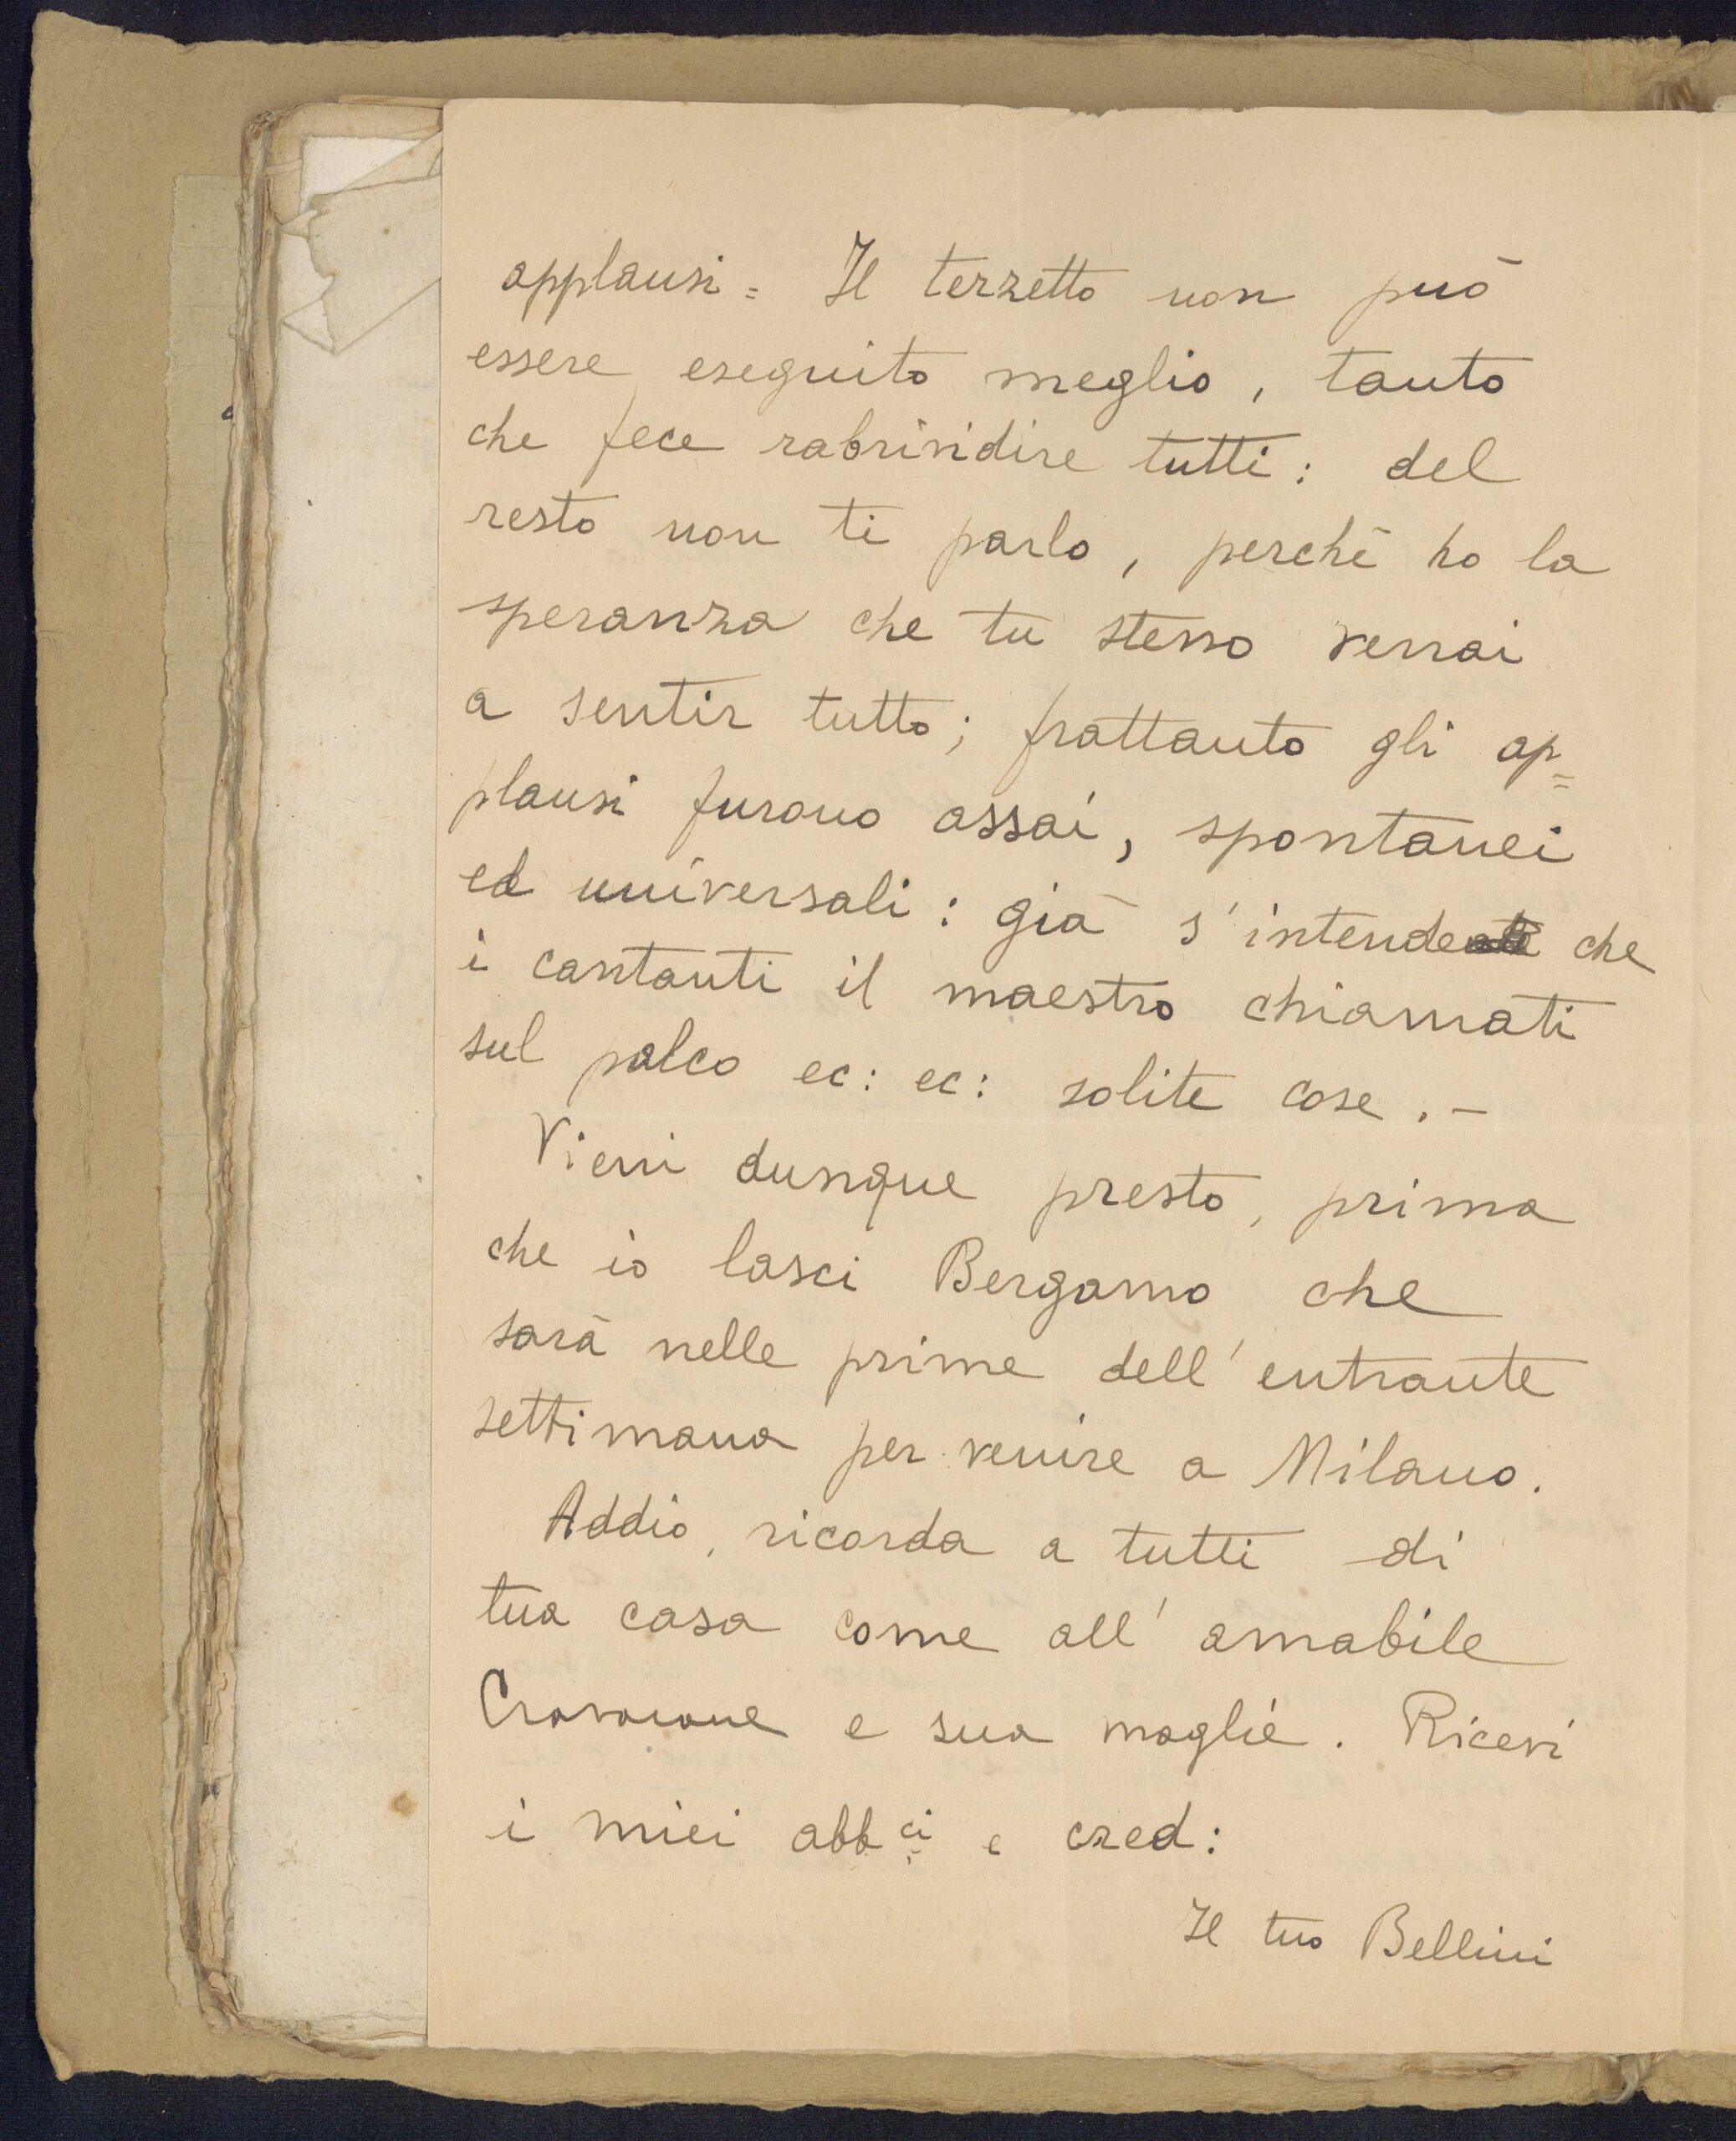 applausi = Il terzetto non può
essere eseguito meglio, tanto
che fece rabrividire tutti: del
resto non ti parlo, perchè ho la
speranza che tu stesso verrai
a sentir tutto; frattanto gli ap=
plausi furono assai, spontanei
ed universali: già s'intende che
i cantanti il maestro chiamati
sul palco ec: ec: solite cose. -
Vieni dunque presto, prima
che io lasci Bergamo che
sarà nelle prime dell'entrante
settimana per venire a Milano.
Addio, ricorda a tutti di
tua casa come all'amabile
e sua moglie. Ricevi
i miei abb.ci e cred:
Il tuo Bellini